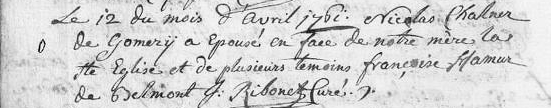 Le 12 du mois d'avril 1761. Nicolas Challner
o de Gomery a Epousé en face de notre mère la
ste Eglise et de plusieurs temoins françoise Hamur
de Belmont J: Ribonet Cure.